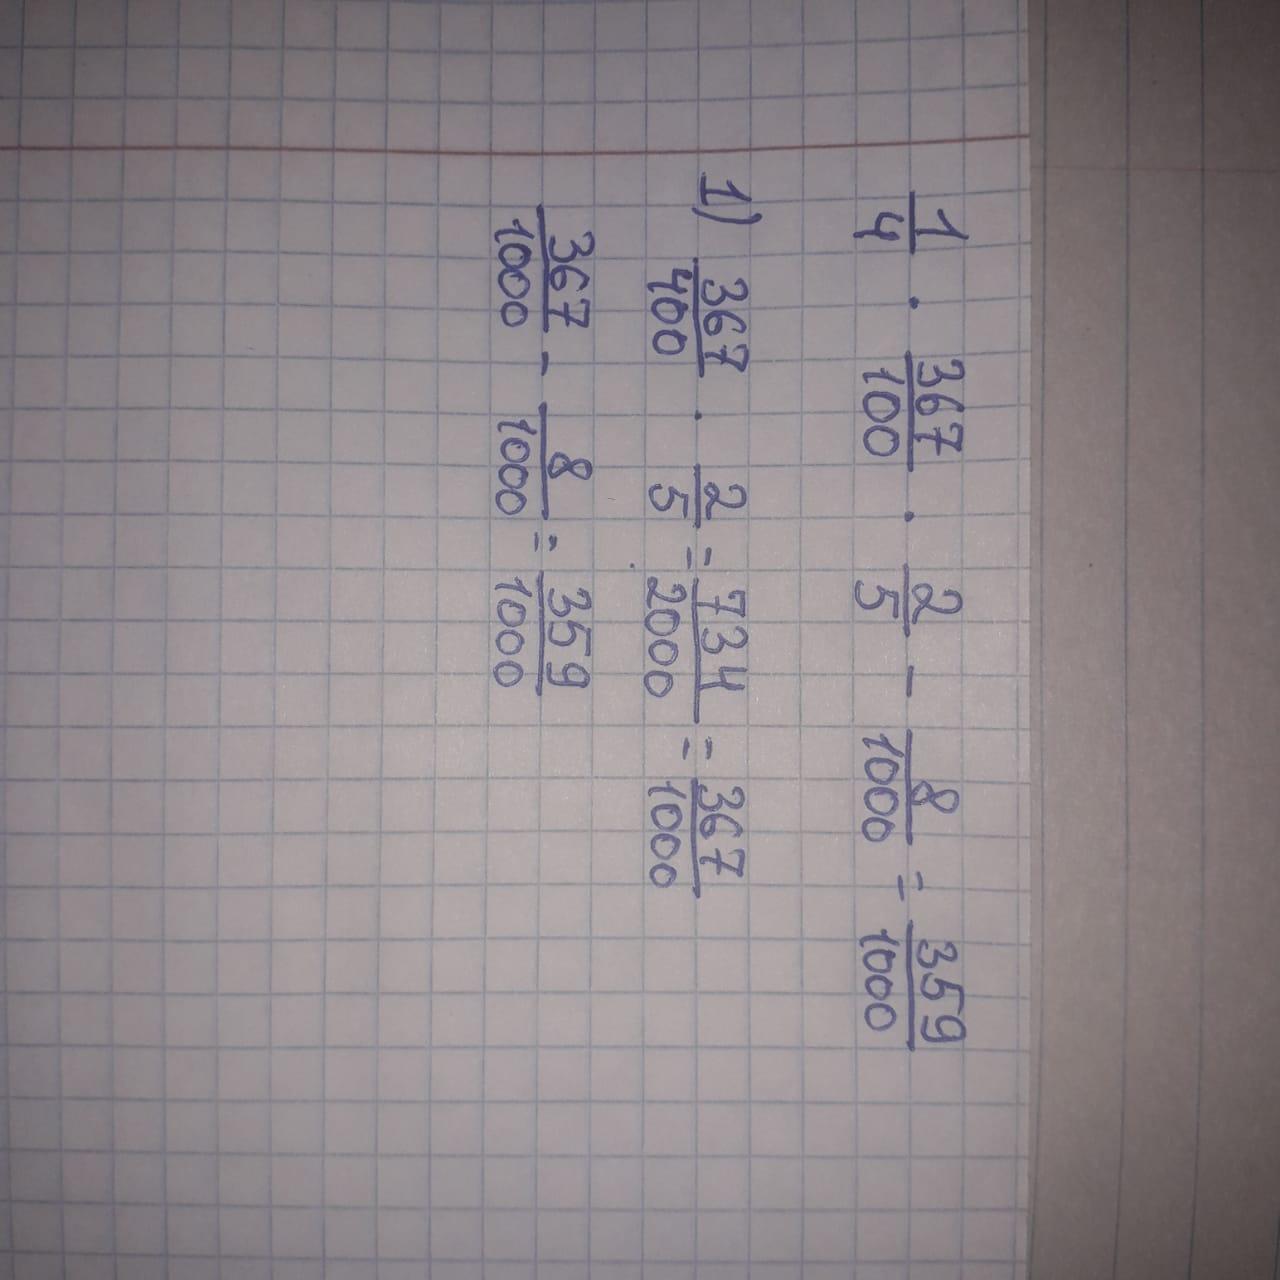 1/4 · 367/100 · 2/5 - 8/1000 = 359/1000
1) 367/400 · 2/5 = 734/2000 = 367/1000
367/1000 - 8/1000 = 359/1000